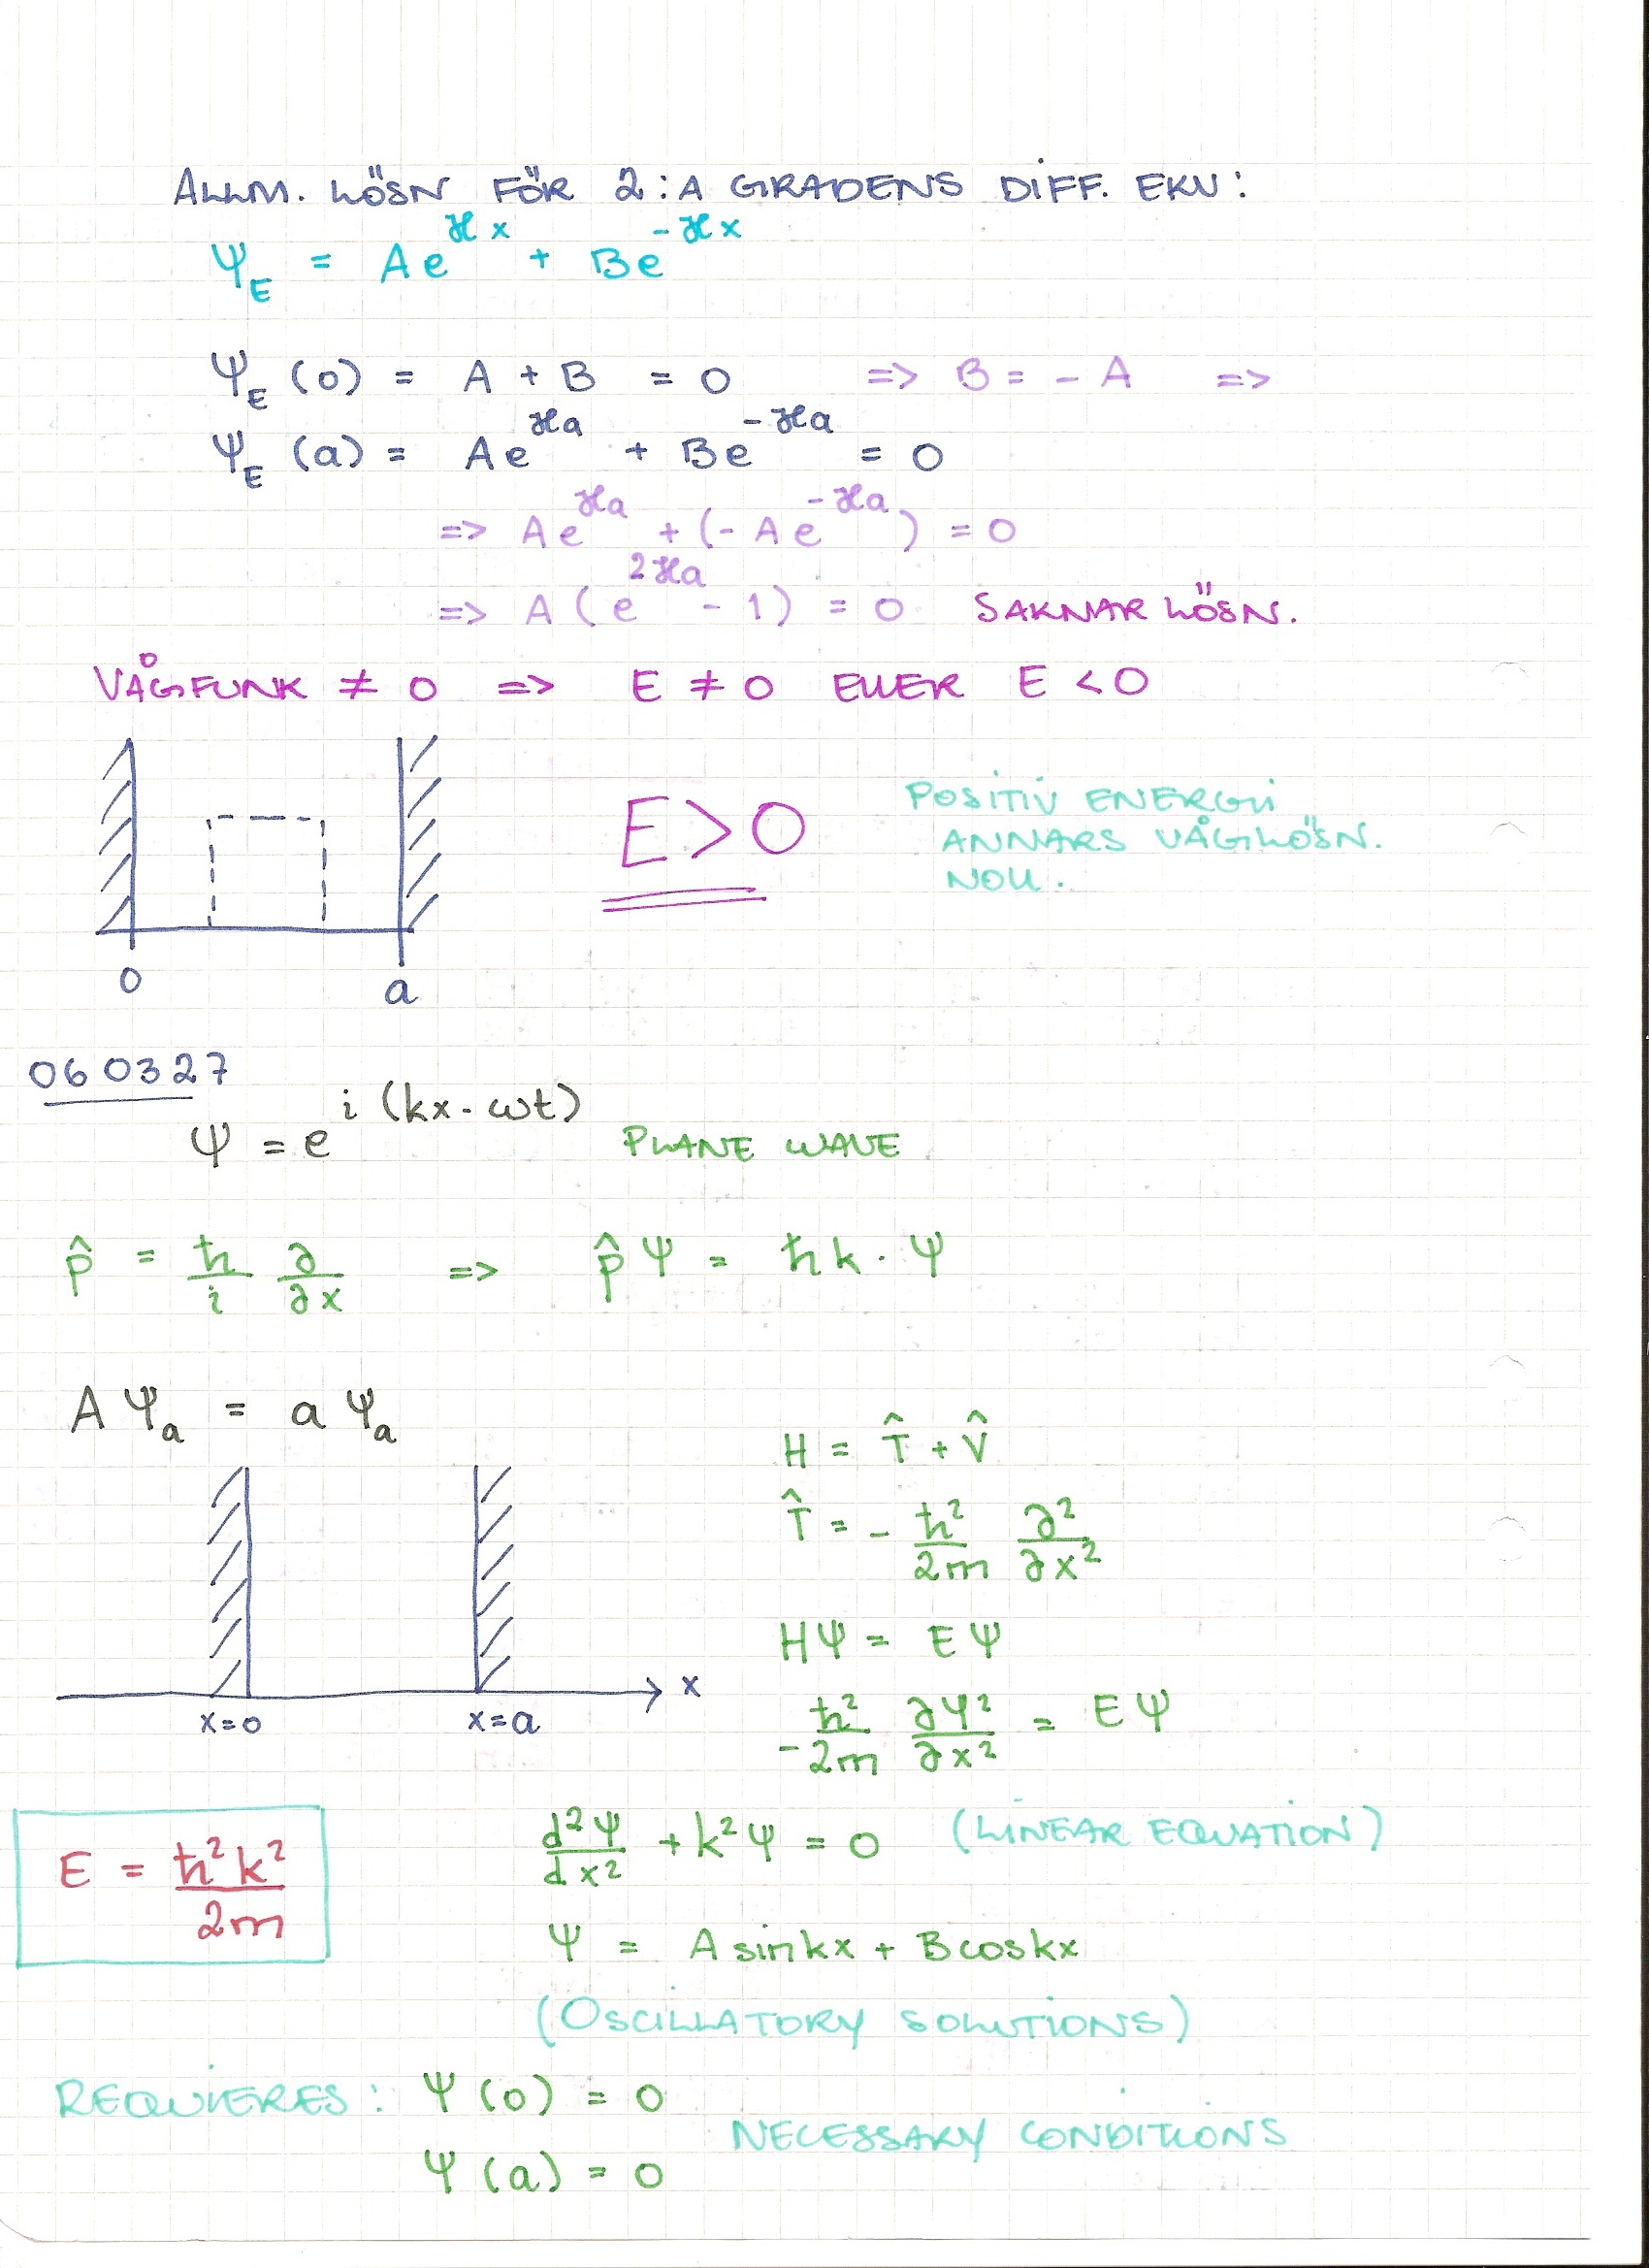 ALLM. LÖSN FÖR 2:A GRADENS DIFF. EKV:
Ψ_E = Ae^{ϰx} + Be^{-ϰx}
Ψ_E (0) = A + B = 0 => B = - A =>
Ψ_E (a) = Ae^{ϰa} + Be^{-ϰa} = 0
=> Ae^{ϰa} + (- Ae^{-ϰa}) = 0
=> A (e^{2ϰa} - 1) = 0 SAKNAR LÖSN.
VÅGFUNK ≠ 0 => E ≠ 0 ELLER E < 0
E > 0
POSITIV ENERGI
ANNARS VÅGLÖSN.
NOLL.
0 a
060327
Ψ = e^{i (kx - ωt)} PLANE WAVE
p̂ = ħ/i ∂/∂x => p̂ Ψ = ħk · Ψ
A Ψ_a = a Ψ_a
H = T̂ + V̂
T̂ = - ħ²/2m ∂²/∂x²
HΨ = EΨ
x=0 x=a x
- ħ²/2m ∂Ψ²/∂x² = EΨ
E = ħ²k²/2m
d²Ψ/dx² + k²Ψ = 0 (LINEAR EQUATION)
Ψ = A sinkx + B coskx
(OSCILLATORY SOLUTIONS)
REQUIERES: Ψ (0) = 0
NECESSARY CONDITIONS
Ψ (a) = 0